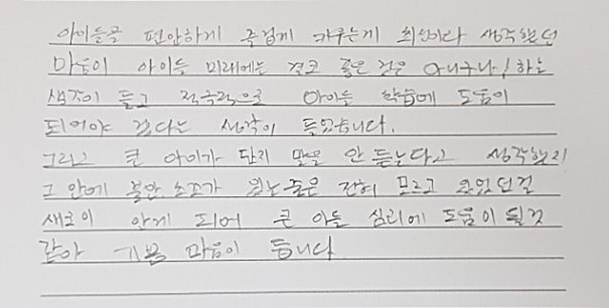 아이들을 편안하게 즐겁게 키우는게 최선이다 생각했던
마음이 아이들 미래에는 결코 좋은 것은 아니구나! 하는
생각이 들고 적극적으로 아이들 학습에 도움이
되어야 겠다는 생각이 들었습니다.
그리고 큰 아이가 단지 말을 안 듣는다고 생각했지
그 안에 불안 초조가 있는 줄은 전혀 모르고 있었던걸
새로이 알게 되어 큰 아들 심리에 도움이 될것
같아 기쁜 마음이 듭니다